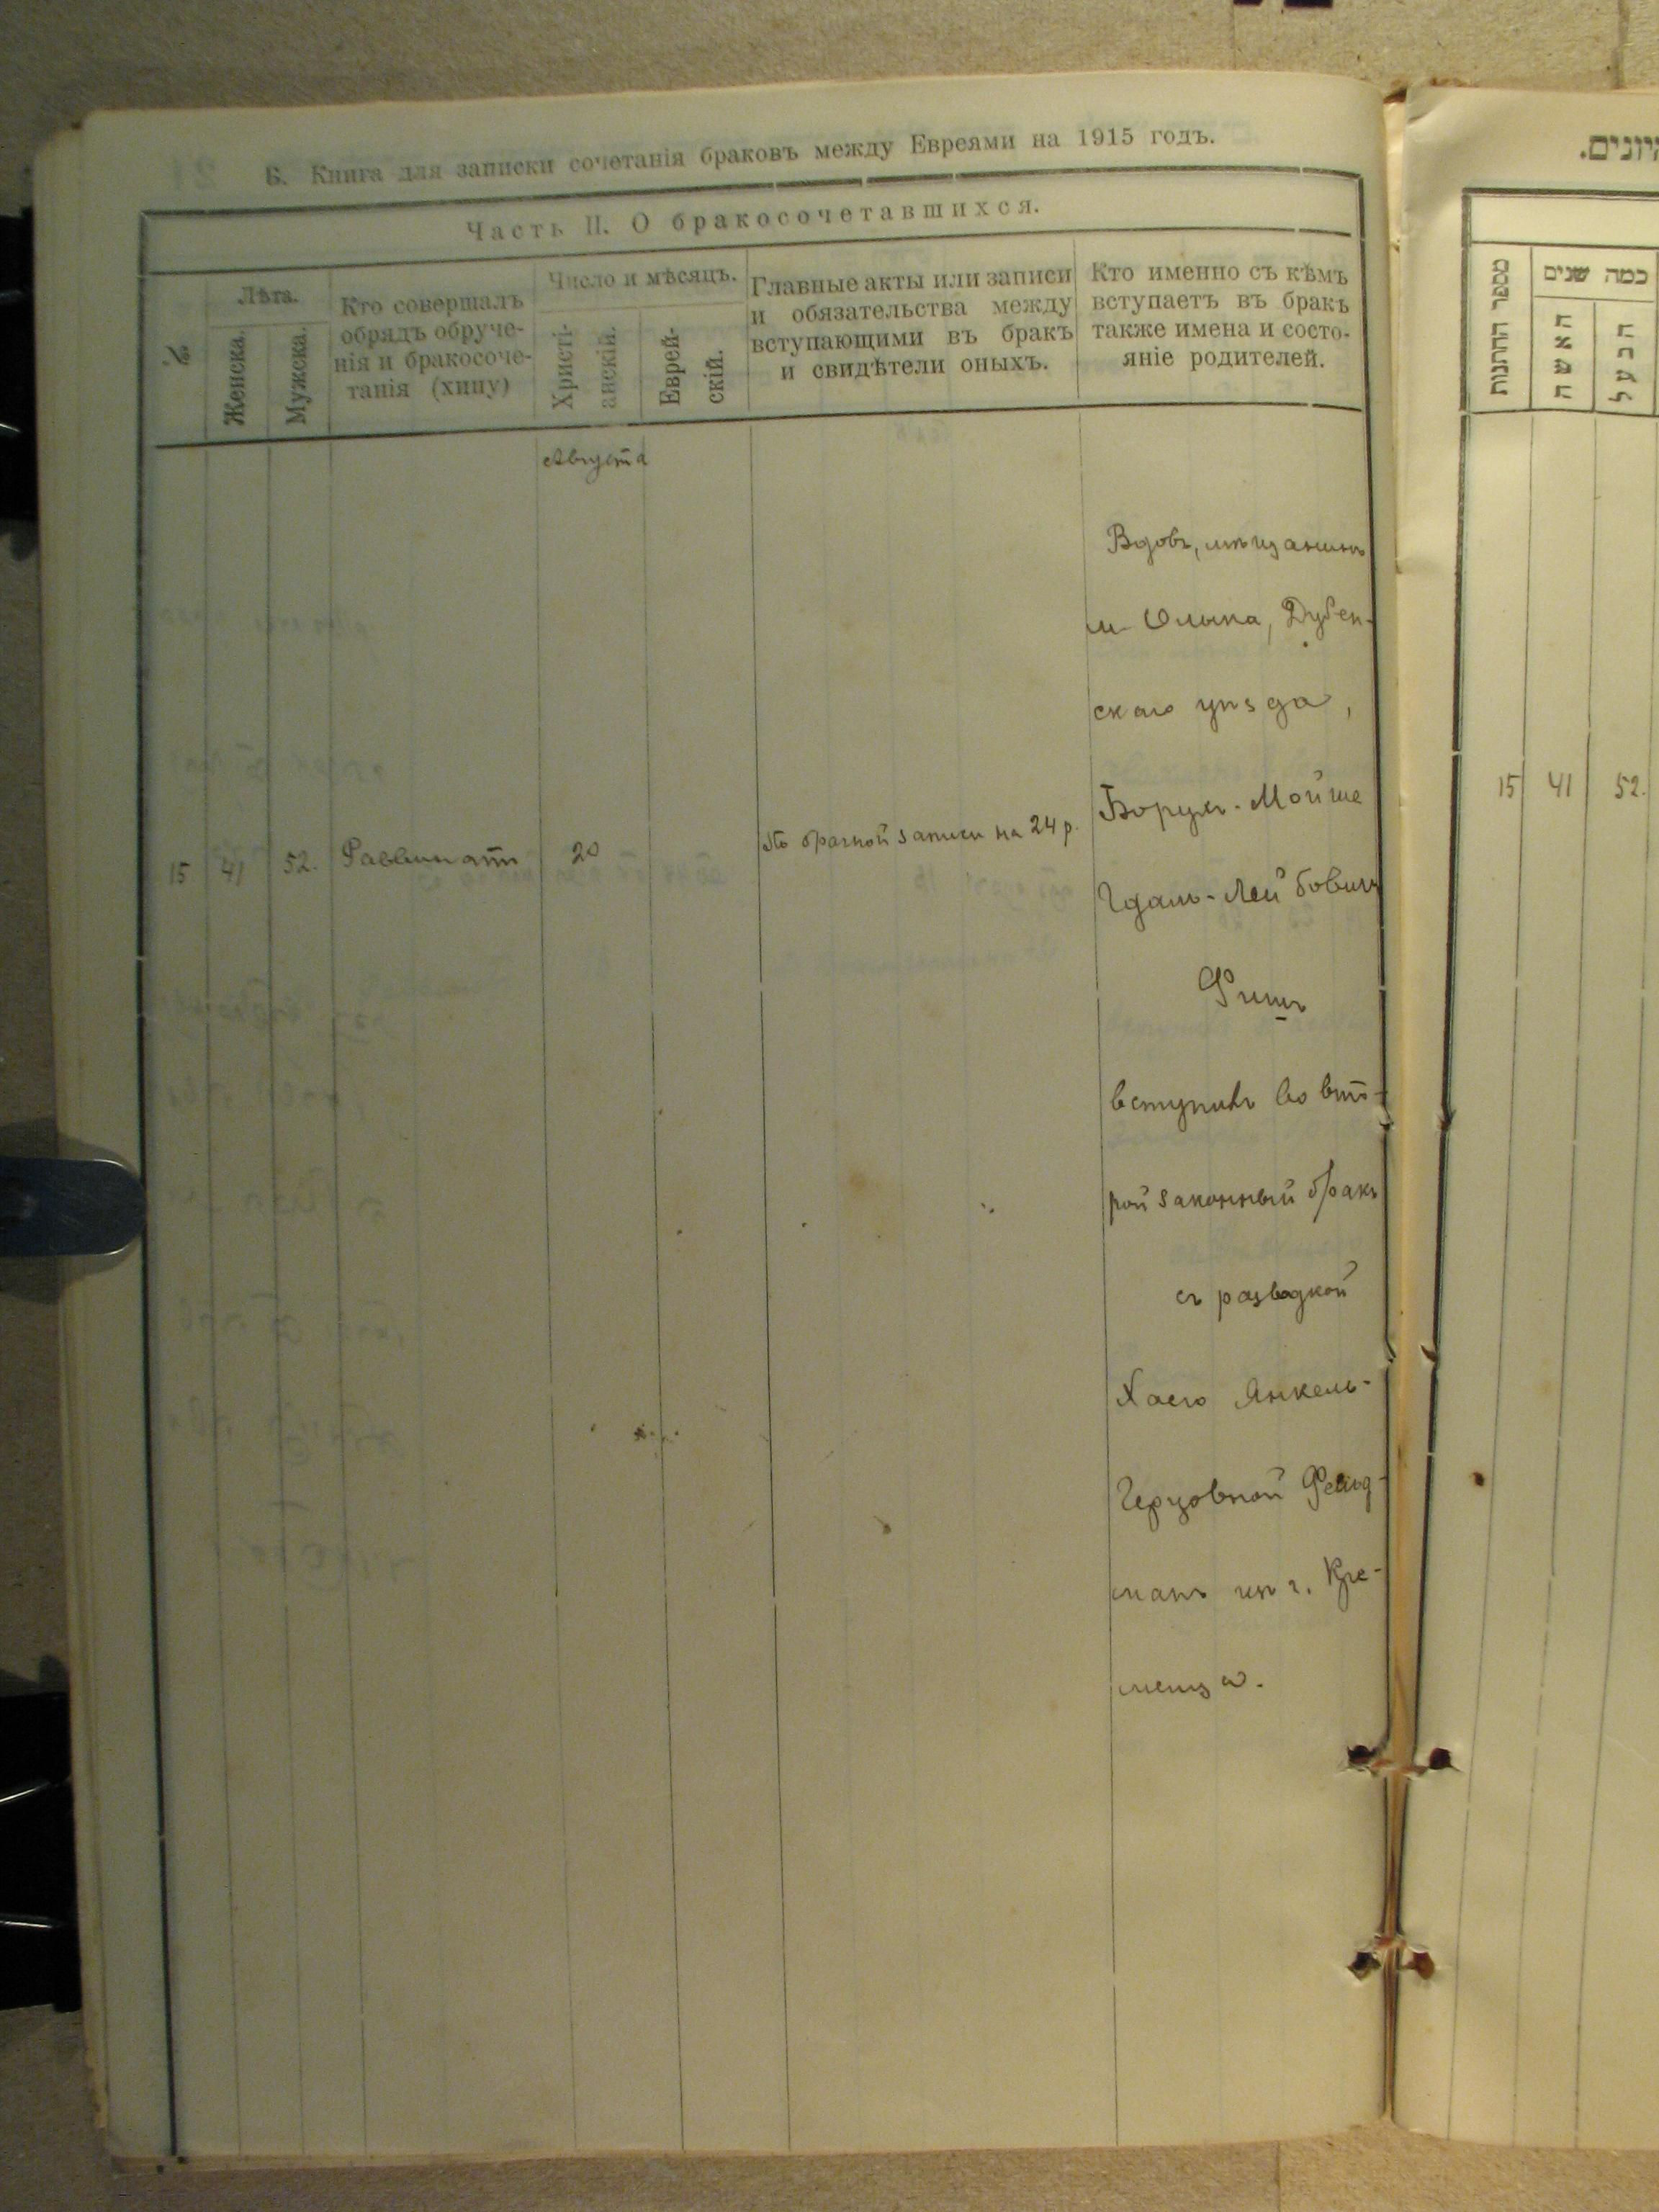 Б. Книга для записки сочетанія браковъ между Евреями на 1915 годъ.
Часть II. О бракосочетавшихся.
№
Лѣта.
Женска.
Мужска.
Кто совершалъ
обрядъ обруче-
нія и бракосоче-
танія (хипу)
Число и мѣсяцъ.
Христі-
анскій.
Еврей-
скій.
Главные акты или записи
и обязательства между
вступающими въ бракъ
и свидѣтели оныхъ.
Кто именно съ кѣмъ
вступаетъ въ бракъ
также имена и состо-
яніе родителей.
Августа
15 41 52. Раввинатъ 20
По брачной записи на 24 р.
Вдовъ, мѣщанинъ
м. Олыка, Дубен-
скаго уѣзда,
Борухъ-Мойше
Гдаль-Лейбовичъ
Фишъ
вступилъ во вто-
рой законный бракъ
съ разводкой
Хаею Янкель-
Герцовной Фельд-
манъ изъ г. Кре-
менца.
יונים.
מספר החתונות
כמה שנים
האשה
הבעל
15 41 52.